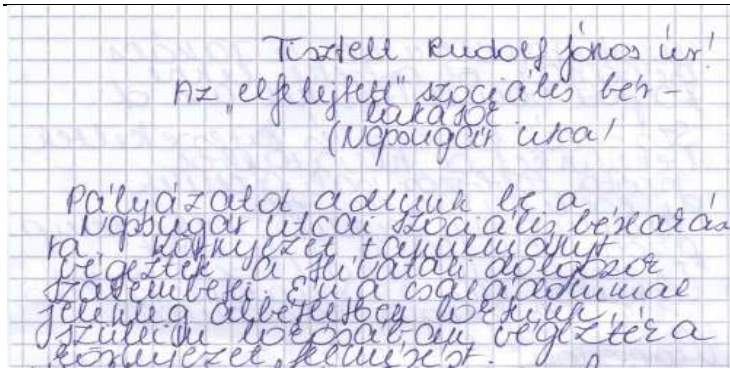 Tisztelt Rudolf János úr!
Az "elfelejtett" szociális bér-
lakások
(Napsugár utca!
Pályázatot adtunk be a
Napsugár utcai szociális bérlakás
ra. Környezet tanulmányt
végeztek a hivatali dolgozók
szakemberei. Én a családommal
jelenleg albérletben lakunk,
szüleim lakásában végezték a
környezet felmérést.